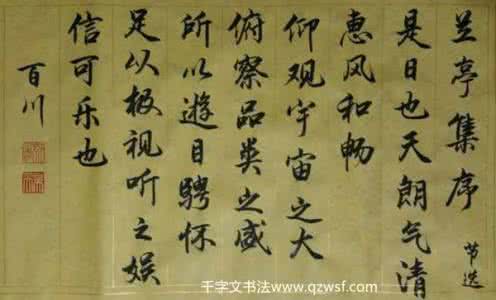 兰亭集序
节选
是日也天朗气清
惠风和畅
仰观宇宙之大
俯察品类之盛
所以遊目骋怀
足以极视听之娱
信可乐也
百川
千字文书法www.qzwsf.com